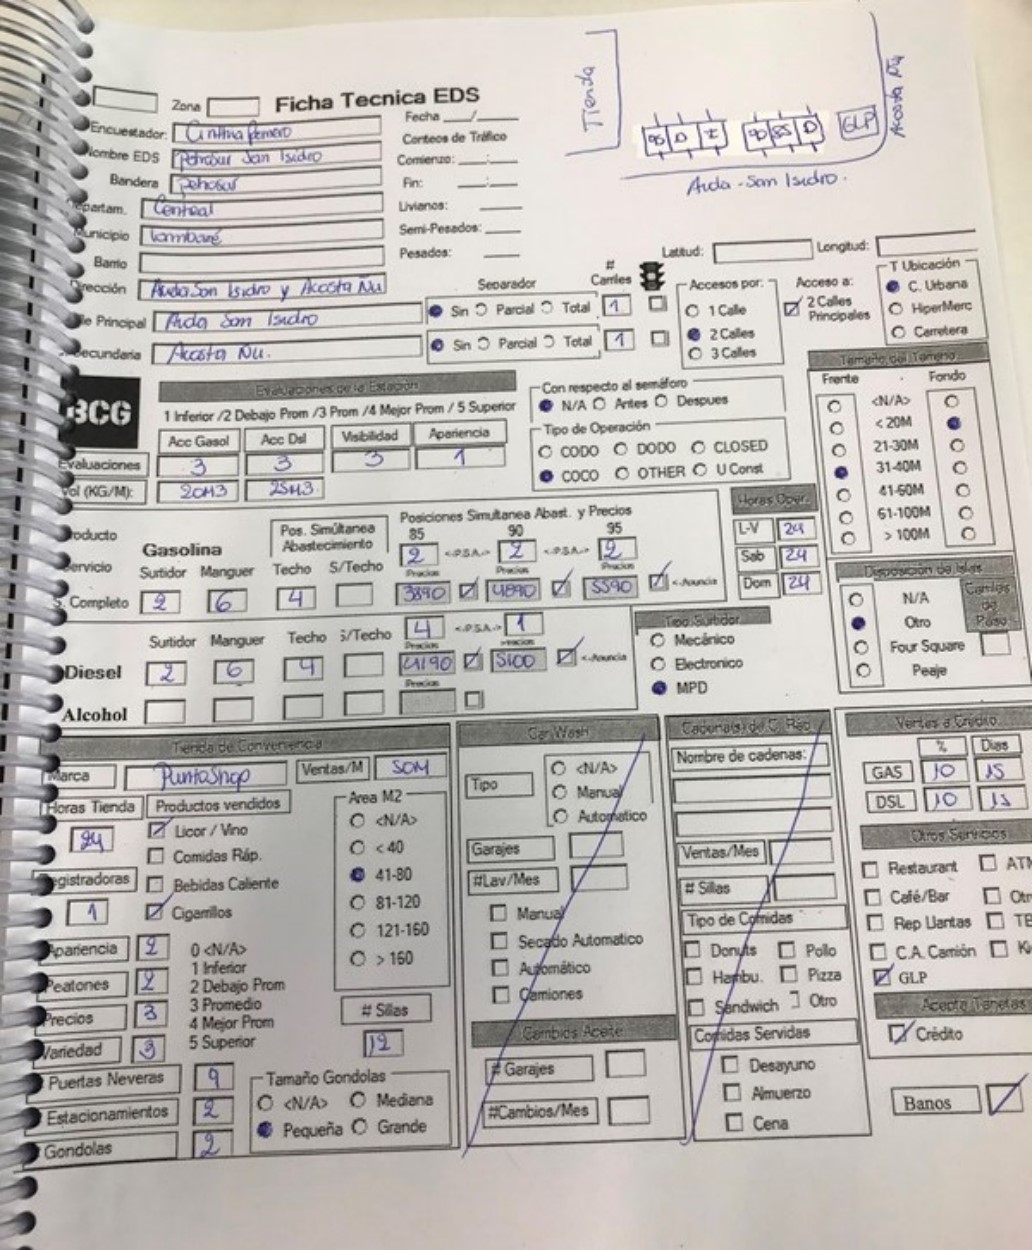 Tienda
90 D I 90 85 D GLP
Acosta Ñu
Avda - San Isidro.
Zona
Ficha Tecnica EDS
Encuestador: Cinthia Romero
Nombre EDS Petrosur San Isidro
Bandera Petrosur
Departam. Central
Municipio Lambaré
Barrio
Dirección Avda San Isidro y Acosta Ñu
Principal Avda San Isidro
Secundaria Acosta Ñu.
Fecha ___/___
Conteos de Tráfico
Comienzo: ___:___
Fin: ___:___
Livianos:
Semi-Pesados:
Pesados:
Separador
# Carriles
Sin Parcial Total 1
Sin Parcial Total 1
Latitud: Longitud:
Accesos por:
1 Calle
2 Calles
3 Calles
Acceso a:
2 Calles Principales
T Ubicación
C. Urbana
HiperMerc
Carretera
BCG
Evaluaciones de la Estación
1 Inferior /2 Debajo Prom /3 Prom /4 Mejor Prom / 5 Superior
Acc Gasol Acc Dsl Visibilidad Apariencia
Evaluaciones 3 3 3 1
Vol (KG/M): 20M3 25M3
Con respecto al semáforo
N/A Antes Despues
Tipo de Operación
CODO DODO CLOSED
COCO OTHER U Const
Tamaño del Terreno
Frente Fondo
<N/A>
< 20M
21-30M
31-40M
41-60M
61-100M
> 100M
Producto
Servicio
S. Completo
Gasolina
Surtidor Manguer
2 6
Pos. Simúltanea Abastecimiento
Techo S/Techo
4
Posiciones Simultanea Abast. y Precios
85 90 95
2 <-P.S.A.-> 2 <-P.S.A.-> 2
Precios Precios Precios
3890 4890 5590 <-Anuncia
Horas Oper.
L-V 24
Sab 24
Dom 24
Disposición de Islas
N/A
Otro
Four Square
Peaje
Carriles de Paso
Diesel
Surtidor Manguer Techo S/Techo
2 6 4
4 <-P.S.A.-> 1
Precios Precios
4190 5100 <-Anuncia
Precios
Alcohol
Tipo Surtidor
Mecánico
Electronico
MPD
Tienda de Conveniencia
Marca PuntoShop Ventas/M 50M
Horas Tienda
24
Registradoras
1
Productos vendidos
Licor / Vino
Comidas Ráp.
Bebidas Caliente
Cigarrillos
Area M2
<N/A>
< 40
41-80
81-120
121-160
> 160
Apariencia 2
Peatones 2
Precios 3
Variedad 3
0 <N/A>
1 Inferior
2 Debajo Prom
3 Promedio
4 Mejor Prom
5 Superior
# Sillas
12
Puertas Neveras 9
Estacionamientos 2
Gondolas 2
Tamaño Gondolas
<N/A> Mediana
Pequeña Grande
Car Wash
Tipo
<N/A>
Manual
Automatico
Garajes
#Lav/Mes
Manual
Secado Automatico
Automático
Camiones
Cambios Aceite
# Garajes
#Cambios/Mes
Cadena(s) de C. Rap
Nombre de cadenas:
Ventas/Mes
# Sillas
Tipo de Comidas
Donuts Pollo
Hambu. Pizza
Sandwich Otro
Comidas Servidas
Desayuno
Almuerzo
Cena
Ventas a Crédito
% Dias
GAS 10 15
DSL 10 15
Otros Servicios
Restaurant
Café/Bar
Rep Llantas
C.A. Camión
GLP
Acepta Tarjetas
Crédito
Banos